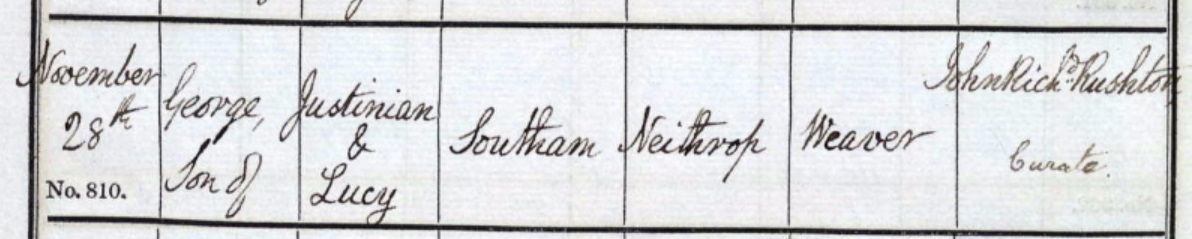 November
28th
No. 810.
George,
Son of
Justinian
&
Lucy
Southam
Neithrop
Weaver
John Richd. Rushton
Curate.